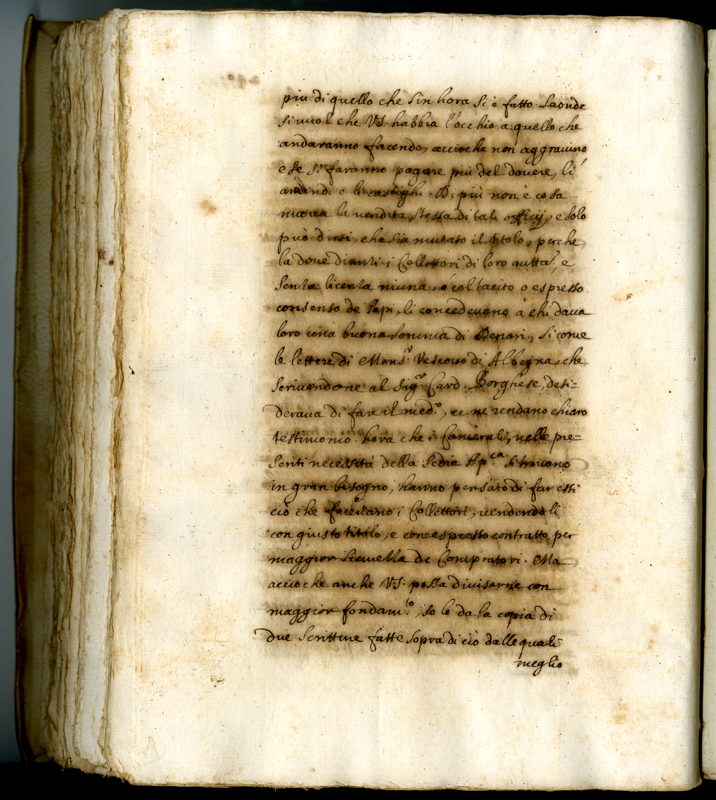 più di quello che sin hora si è fatto. Laonde
si vuol che V.S. habbia l'occhio a quello che
andaranno facendo, accioche non aggravino
e se si faranno pagare più del dovere, li
amendi e li castighi. Di più non è cosa
nuova la vendita stessa di tali officij, e solo
può dirsi, che sia mutato il titolo, perche
la dove dianzi i Collettori di loro autta, e
senza licenza niuna, o col tacito o espresso
consenso de Papi, li concedevano à chi dava
loro una buona somma di Denari, si come
le lettere di Mons.r Vescovo di Albegna, che
scrivendone al Sig.r Card. Borghese, desi-
derava di fare il med.o, ce ne rendano chiaro
testimonio hora che i Camerali, nelle pre-
senti necessità della Sedia Ap.ca si trovano
in gran bisogno, hanno pensato di far essi
ciò che facevano i Collettori, vendendoli
con giusto titolo, e con espresso contratto per
maggior sicurezza de Compratori. Ma
accioche anche V.S. possa divisarne con
maggior fondam.to, se le da la copia di
due Scritture fatte sopra di ciò dalle quali
meglio